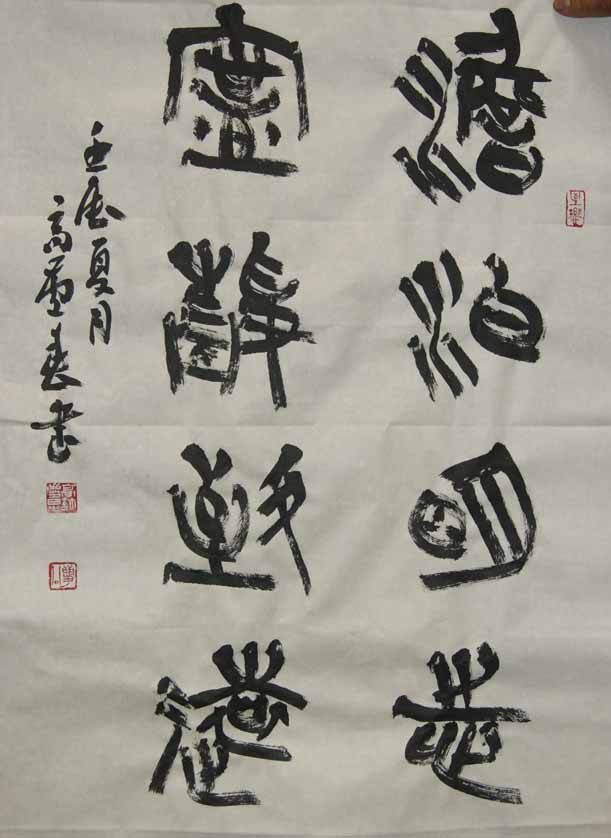 澹泊明志
寧靜致遠
壬辰夏月
高星春书